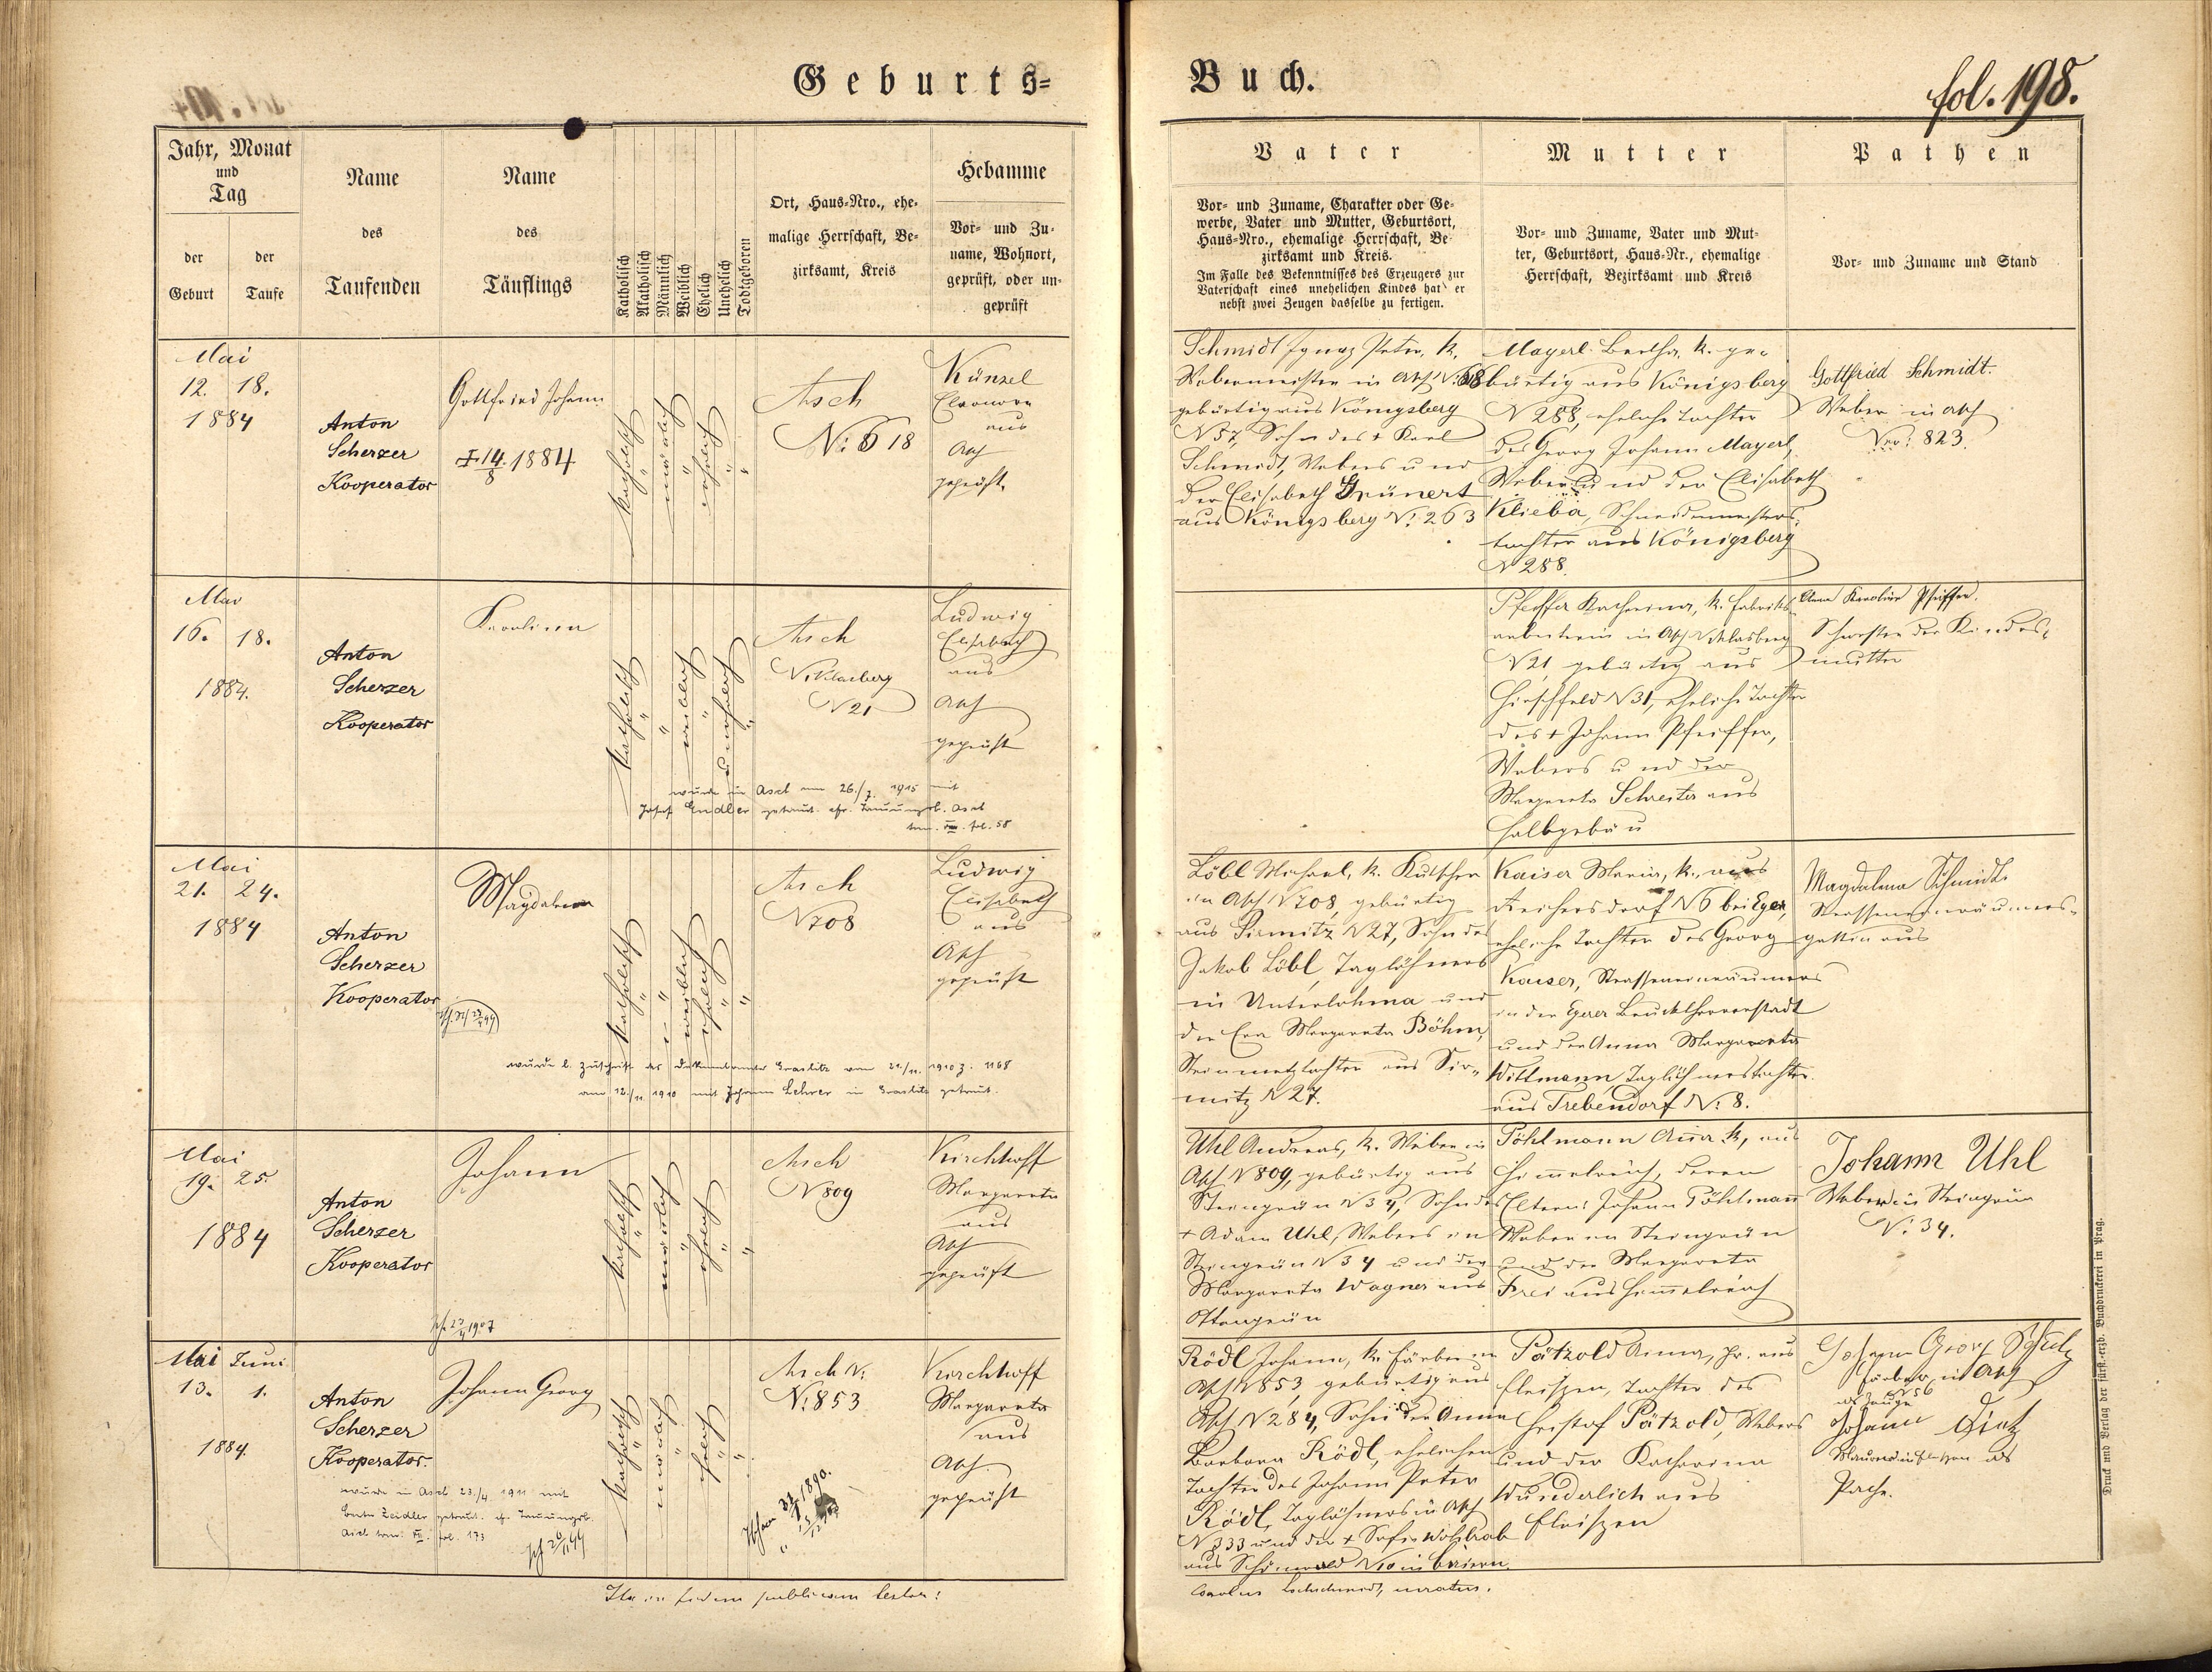 Geburts=
Buch.
fol. 198.
Jahr, Monat
und
Tag
der
Geburt
der
Taufe
Name
des
Taufenden
Name
des
Täuflings
Katholisch
Akatholisch
Männlich
Weiblich
Ehelich
Unehelich
Todtgeboren
Ort, Haus=Nro., ehe-
malige Herrschaft, Be-
zirksamt, Kreis
Hebamme
Vor- und Zu-
name, Wohnort,
geprüft, oder un-
geprüft
Vater
Vor- und Zuname, Charakter oder Ge-
werbe, Vater und Mutter, Geburtsort,
Haus=Nro., ehemalige Herrschaft, Be-
zirksamt und Kreis.
Im Falle des Bekenntnisses des Erzeugers zur
Vaterschaft eines unehelichen Kindes hat er
nebst zwei Zeugen dasselbe zu fertigen.
Mutter
Vor- und Zuname, Vater und Mut-
ter, Geburtsort, Haus=Nr., ehemalige
Herrschaft, Bezirksamt und Kreis
Pathen
Vor- und Zuname und Stand
Mai
12. 18.
1884
Anton
Scherzer
Kooperator
Gottfried Johann
† 14/8 1884
katholisch
männlich
ehelich
Asch
N: 618
Künzel
Eleonora
aus
Asch
geprüft.
Schmidt Ignaz Peter, k.
Webermeister in Asch N: 618
gebürtig aus Königsberg
N 57, Sohn des † Karl
Schmidt, Webers und
der Elisabeth Grünert
aus Königsberg N: 263
Mayerl Bertha, k. ge-
bürtig aus Königsberg
N 288, eheliche Tochter
des Georg Johann Mayerl,
Webers und der Elisabeth
Klieba, Schneidermeisters-
tochter aus Königsberg
N 288.
Gottfried Schmidt.
Weber in Asch
Nro: 823.
Mai
16. 18.
1884.
Anton
Scherzer
Kooperator
Karolina
katholisch
weiblich
unehelich
Asch
Niklasberg
N 21
Ludwig
Elisabeth
aus
Asch
geprüft
wurde in Asch am 26./7. 1915 mit
Josef Endler getraut. cfr. Trauungsb. Asch
tom. VIII. fol. 58
Pfeiffer Katharina, k. Fabriks-
arbeiterin in Asch Niklasberg
N 21, gebürtig aus
Hirschfeld N 31, eheliche Tochter
des † Johann Pfeiffer,
Webers und der
Margareta Schreiter aus
Halbgebäu
Anna Karoline Pfeiffer.
Schwester der Kindes-
mutter
Mai
21. 24.
1884
Anton
Scherzer
Kooperator
Magdalena
katholisch
weiblich
ehelich
Asch
N 708
Ludwig
Elisabeth
aus
Asch
geprüft
wurde l. Zuschrift des Dekanalamtes Graslitz vom 21./11. 1910 Z. 1168
am 12./11. 1910 mit Johann Lehrer in Graslitz getraut.
Löbl Michael, k. Kutscher
in Asch N 708, gebürtig
aus Sirmitz N 27, Sohn des
Jakob Löbl, Taglöhners
in Unterlohma und
der Eva Margareta Böhm,
Steinmetztochter aus Sir-
mitz N 27.
Kaiser Maria, k., aus
Reichersdorf N 6 bei Eger,
eheliche Tochter des Georg
Kaiser, Strasseneinräumers
in der Egerer Bruckthorvorstadt
und der Anna Margareta
Wittmann, Taglöhnerstochter
aus Trebendorf N: 8.
Magdalena Schmidt
Strasseneinräumers-
gattin aus
Mai
19. 25.
1884
Anton
Scherzer
Kooperator
Johann
katholisch
männlich
ehelich
Asch
N 809
Kirchhoff
Margareta
aus
Asch
geprüft
Uhl Andreas, k. Weber in
Asch N 809, gebürtig aus
Steingrün N 34, Sohn des
† Adam Uhl, Webers in
Steingrün N 34 und der
Margareta Wagner aus
Ottengrün
Pöhlmann Anna k, aus
Himmelreich, deren
Eltern: Johann Pöhlmann
Weber in Steingrün
und der Margareta
Frei aus Himmelreich
Johann Uhl
Weber in Steingrün
N: 34.
Mai Juni
13. 1.
1884.
Anton
Scherzer
Kooperator.
Johann Georg
katholisch
männlich
ehelich
Asch N:
N: 853
Kirchhoff
Margareta
aus
Asch.
geprüft
wurde in Asch 23./4 1911 mit
Berta Zeidler getraut. cfr. Trauungsb.
Asch tom. VII. fol. 173
Rödl Johann, k. Färber in
Asch N 853, gebürtig aus
Asch N 284, Sohn der Anna
Barbara Rödl, ehelichen
Tochter des Johann Peter
Rödl, Taglöhners in Asch
N 333 und der † Sofie Wohlrab
aus Schönwald N 10 in Baiern.
Pätzold Anna, pr. aus
Fleißen, Tochter des
Christof Pätzold, Webers
und der Katharina
Wunderlich aus
Fleißen
Johann Georg
Färber in Asch
N 56
als Zeuge
Johann
als
Pathe.
Ita in fidem publicam testor:
Druck und Verlag der fürst.-erzb. Buchdruckerei in Prag.